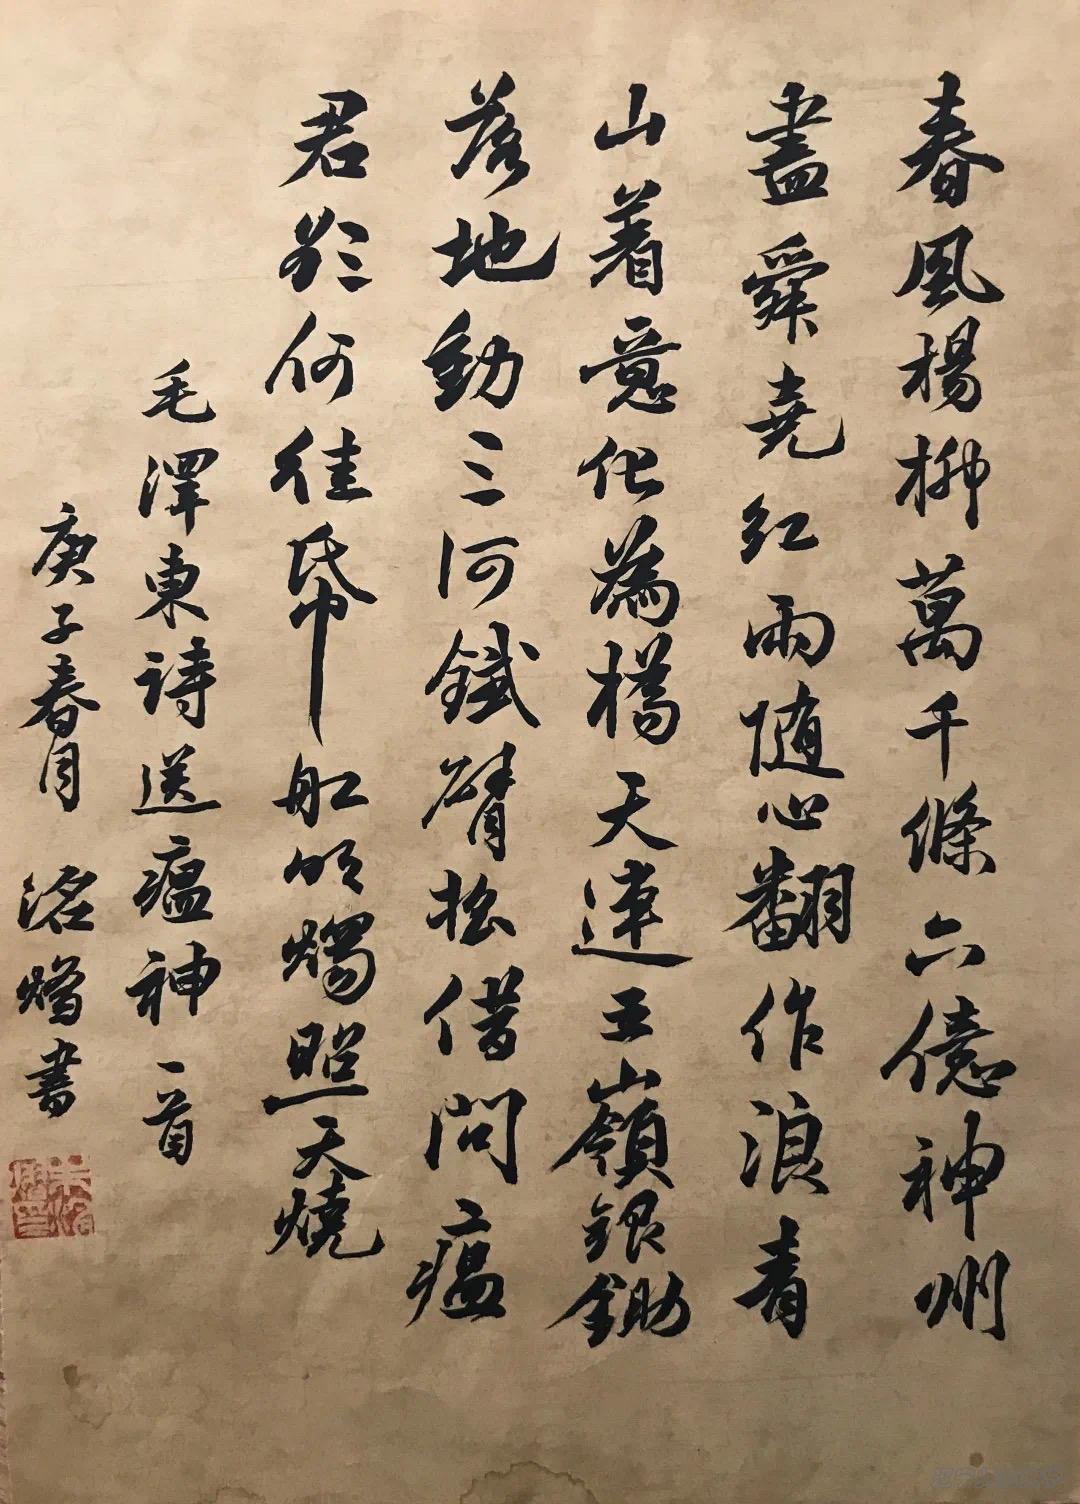 春風楊柳萬千條六億神州
盡舜堯紅雨随心翻作浪青
山着意化為橋天連五嶺銀鋤
落地動三河鐵臂搖借問瘟
君欲何往帋船明燭照天燒
毛澤東詩送瘟神一首
庚子春月 洺熠書